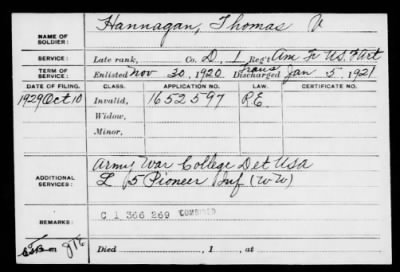 NAME OF SOLDIER: Hannagan, Thomas V
SERVICE: Late rank, Co. D, 1 Reg't Am Tr U.S. F Art
TERM OF SERVICE: Enlisted Nov 30, 1920 Trans Discharged Jan 5, 1921
DATE OF FILING. CLASS. APPLICATION NO. LAW. CERTIFICATE NO.
1929 Oct 10 Invalid, 1652597 R.E.
Widow,
Minor,
ADDITIONAL SERVICES: Army War College Det USA
L 5 Pioneer Inf (WW)
REMARKS: C 1 366 269 COMBINED
Died , 1 , at